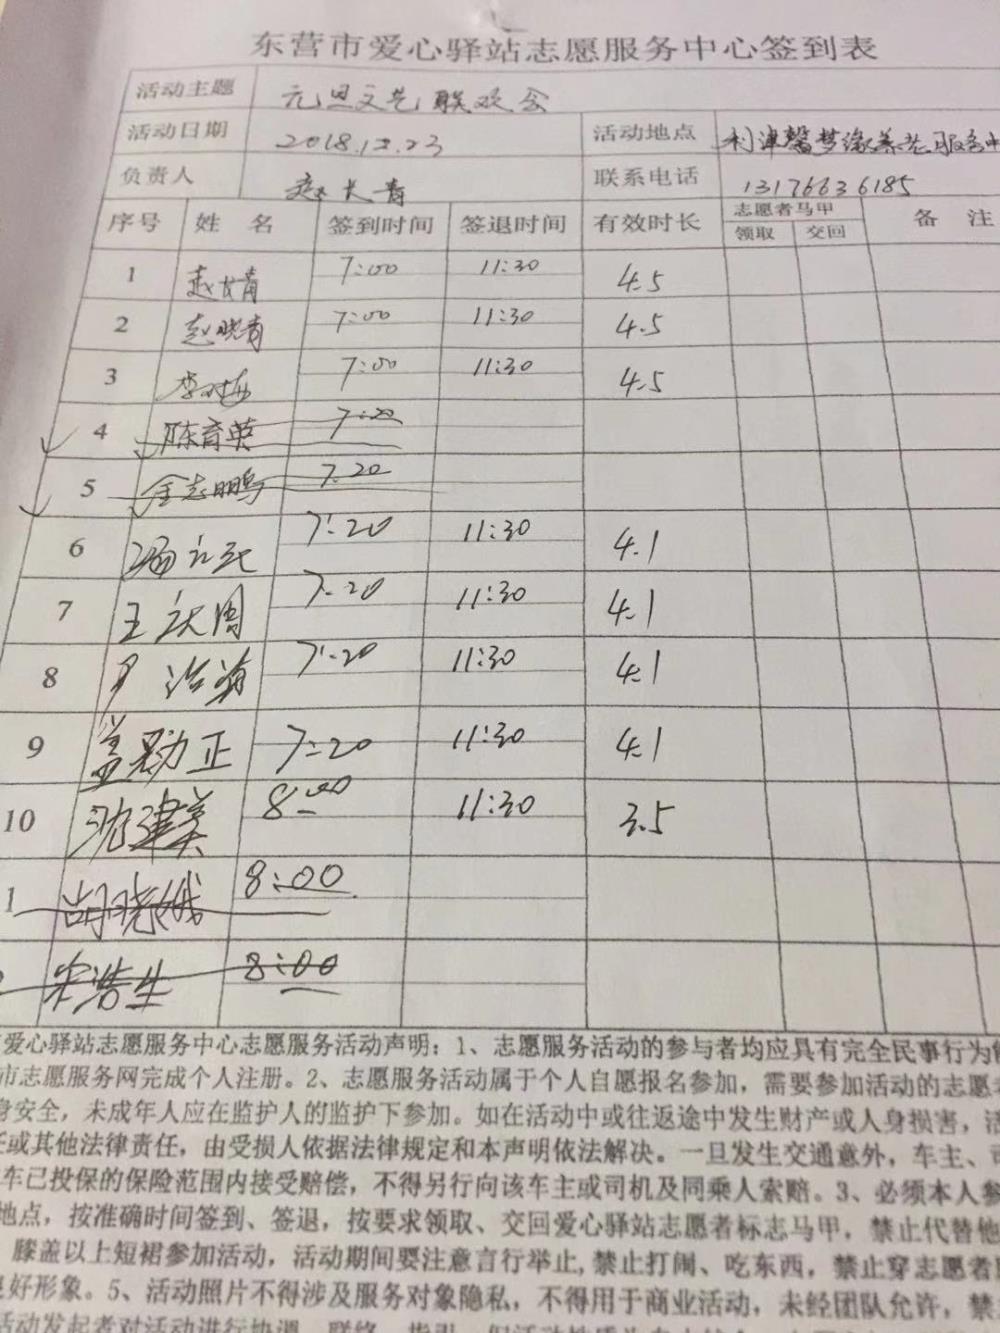 东营市爱心驿站志愿服务中心签到表
活动主题 元旦文艺联欢会
活动日期 2018.12.23 活动地点 利津馨梦缘养老服务中
负责人 赵长青 联系电话 13176636185
序号 姓 名 签到时间 签退时间 有效时长 志愿者马甲 备 注
领取 交回
1 赵长青 7:00 11:30 4.5
2 赵晓青 7:00 11:30 4.5
3 李 7:00 11:30 4.5
4 陈育英 7:20
5 金志鹏 7.20
6 7:20 11:30 4.1
7 王庆周 7:20 11:30 4.1
8 7:20 11:30 4.1
9 盖勋正 7:20 11:30 4.1
10 沈建美 8:00 11:30 3.5
1 胡晓娥 8:00
宋浩生 8:00
爱心驿站志愿服务中心志愿服务活动声明：1、志愿服务活动的参与者均应具有完全民事行为能
市志愿服务网完成个人注册。2、志愿服务活动属于个人自愿报名参加，需要参加活动的志愿者
身安全，未成年人应在监护人的监护下参加。如在活动中或往返途中发生财产或人身损害，活
任或其他法律责任，由受损人依据法律规定和本声明依法解决。一旦发生交通意外，车主、司
车已投保的保险范围内接受赔偿，不得另行向该车主或司机及同乘人索赔。3、必须本人参
地点，按准确时间签到、签退，按要求领取、交回爱心驿站志愿者标志马甲，禁止代替他
膝盖以上短裙参加活动，活动期间要注意言行举止,禁止打闹、吃东西，禁止穿志愿者
良好形象。5、活动照片不得涉及服务对象隐私，不得用于商业活动，未经团队允许，禁
活动发起者对活动进行协调、联络、指引